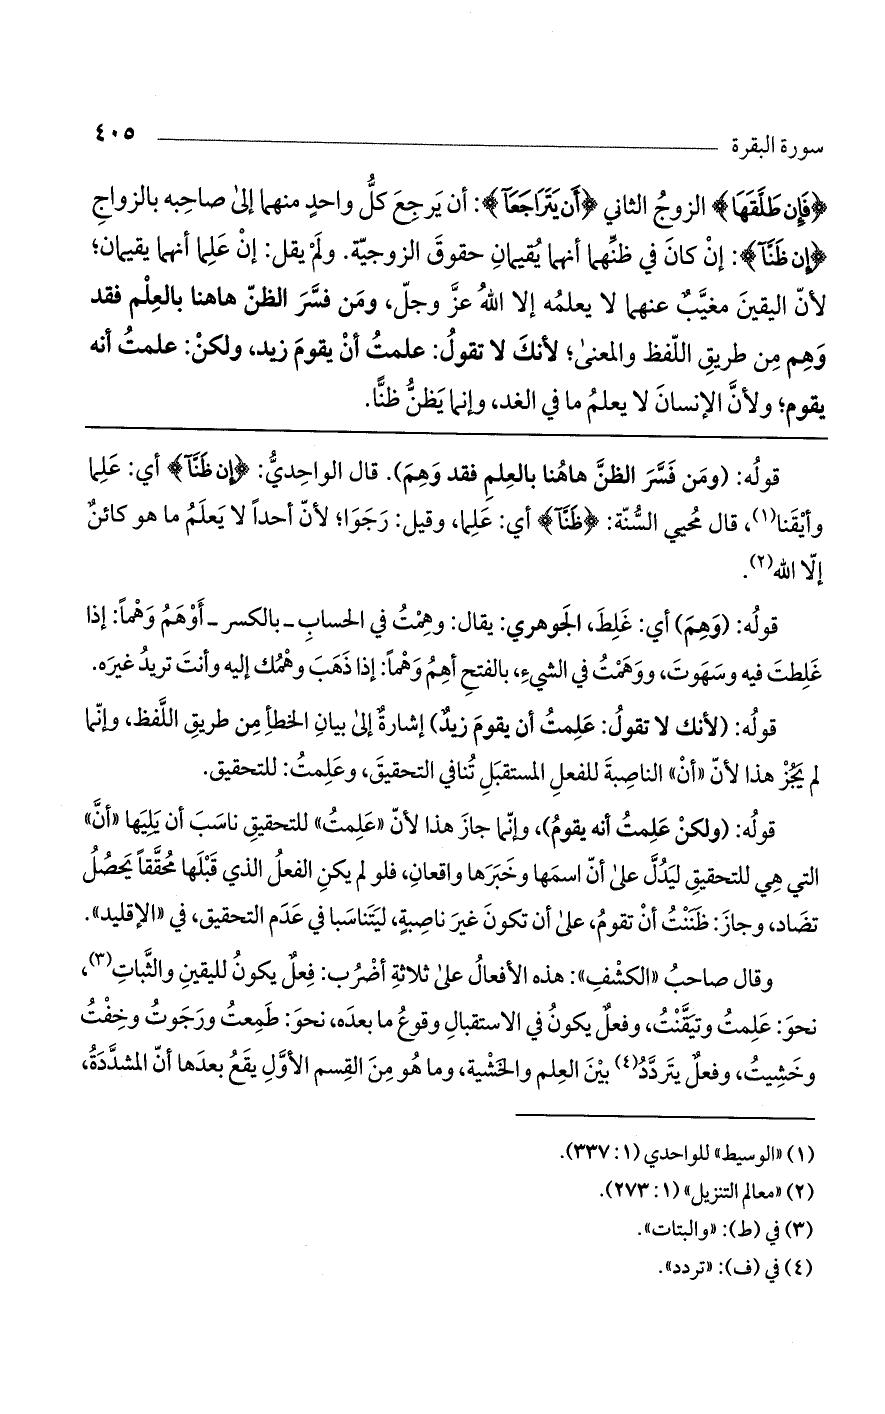 سورة البقرة ٤٠٥
﴿فَإِن طَلَّقَهَا﴾ الزوجُ الثاني ﴿أَن يَتَرَاجَعَآ﴾: أن يَرجِعَ كلُّ واحدٍ منهما إلىٰ صاحبِه بالزواجِ
﴿إِن ظَنَّآ﴾: إنْ كانَ في ظنِّهما أنهما يُقيمانِ حقوقَ الزوجيّة. ولَمْ يقل: إنْ عَلِما أنهما يقيمان؛
لأنّ اليقينَ مغيَّبٌ عنهما لا يعلمُه إلا اللهُ عزَّ وجلّ، ومَن فسَّرَ الظنّ هاهنا بالعِلْم فقد
وَهِم مِن طريقِ اللّفظ والمعنىٰ؛ لأنكَ لا تقولُ: علمتُ أنْ يقومَ زيد، ولكنْ: علمتُ أنه
يقوم؛ ولأنَّ الإنسانَ لا يعلمُ ما في الغد، وإنما يَظنُّ ظنًّا.
قولُه: (ومَن فَسَّرَ الظنَّ هاهُنا بالعِلمِ فقد وَهِمَ). قال الواحِديُّ: ﴿إِن ظَنَّآ﴾ أي: عَلِما
وأيْقَنا(١)، قال مُحيي السُّنّة: ﴿ظَنَّآ﴾ أي: عَلِما، وقيل: رَجَوَا؛ لأنّ أحداً لا يَعلَمُ ما هو كائنٌ
إلّا الله(٢).
قولُه: (وَهِمَ) أي: غَلِطَ، الجَوهري: يقال: وهِمْتُ في الحسابِ ـ بالكسر ـ أَوْهَمُ وَهْماً: إذا
غَلِطتَ فيه وسَهَوتَ، ووَهَمْتُ في الشيءِ، بالفتح أهِمُ وَهْماً: إذا ذَهَبَ وهْمُك إليه وأنتَ تريدُ غيرَه.
قولُه: (لأنك لا تقولُ: عَلِمتُ أن يقومَ زيدٌ) إشارةٌ إلىٰ بيانِ الخطأِ مِن طريقِ اللَّفظ، وإنّما
لم يَجُزْ هذا لأنّ «أنْ» الناصِبةَ للفعلِ المستقبَلِ تُنافي التحقيقَ، وعَلِمتُ: للتحقيق.
قولُه: (ولكنْ عَلِمتُ أنه يقومُ)، وإنّما جازَ هذا لأنّ «عَلِمتُ» للتحقيقِ ناسَبَ أن يَلِيَها «أنَّ»
التي هِي للتحقيقِ ليَدُلَّ علىٰ أنّ اسمَها وخَبَرَها واقعانِ، فلو لم يكنِ الفعلُ الذي قَبْلَها مُحقَّقاً يَحصُلُ
تضَاد، وجازَ: ظَنَنْتُ أنْ تقومُ، علىٰ أن تكونَ غيرَ ناصِبةٍ، ليَتَناسَبا في عَدَم التحقيق، في «الإقليد».
وقال صاحبُ «الكشْفِ»: هذه الأفعالُ علىٰ ثلاثةِ أضْرُب: فِعلٌ يكونُ لليقينِ والثَّباتِ(٣)،
نحوَ: عَلِمتُ وتيَقَّنْتُ، وفعلٌ يكونُ في الاستقبالِ وقوعُ ما بعدَه، نحوَ: طَمِعتُ ورَجَوتُ وخِفْتُ
وخَشِيتُ، وفعلٌ يتَردَّدُ(٤) بيْنَ العِلم والخَشْية، وما هُو مِنَ القِسم الأوَّلِ يقَعُ بعدَها أنّ المشدَّدَةُ،
(١) «الوسيط» للواحدي (١: ٣٣٧).
(٢) «معالم التنزيل» (١: ٢٧٣).
(٣) في (ط): «والبتات».
(٤) في (ف): «تردد».